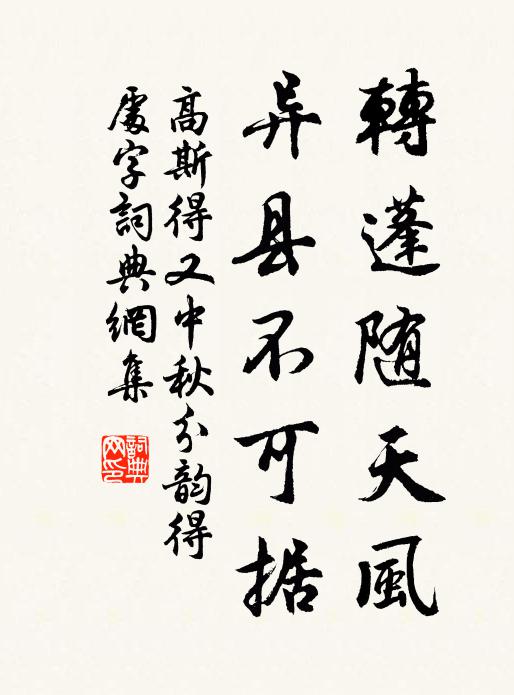 轉蓬随天風
异县不可据
高斯得又中秋分韵得
處字詞典網集
詞典网印